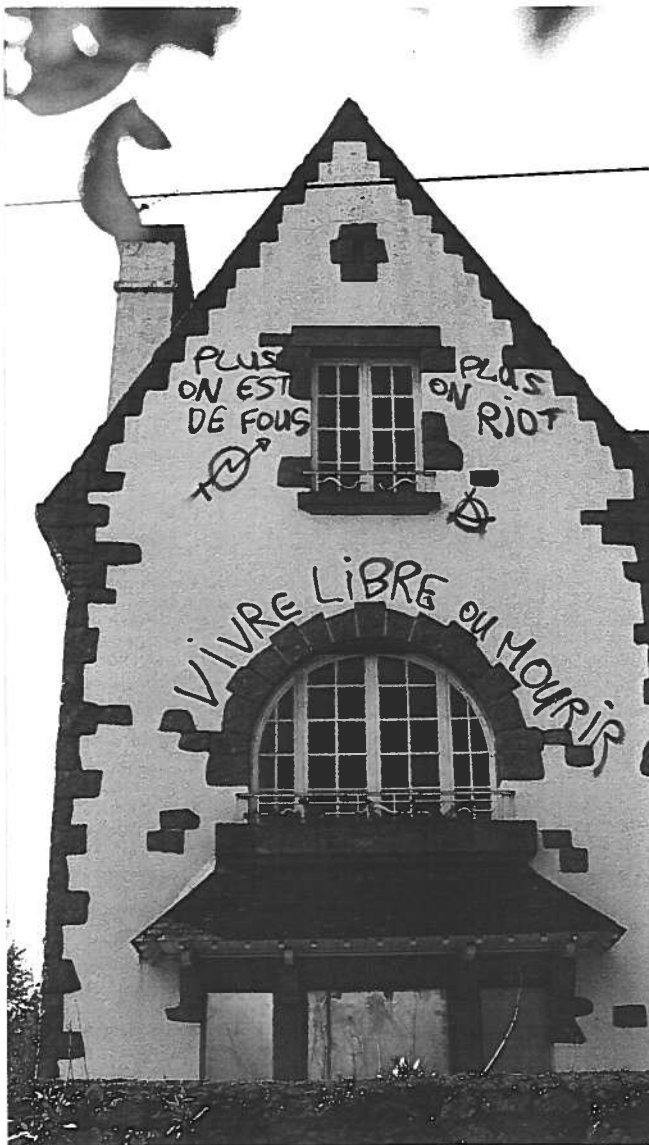 PLUS
ON EST
DE FOUS
PLUS
ON RIOT
VIVRE LiBRE OU MOURIR